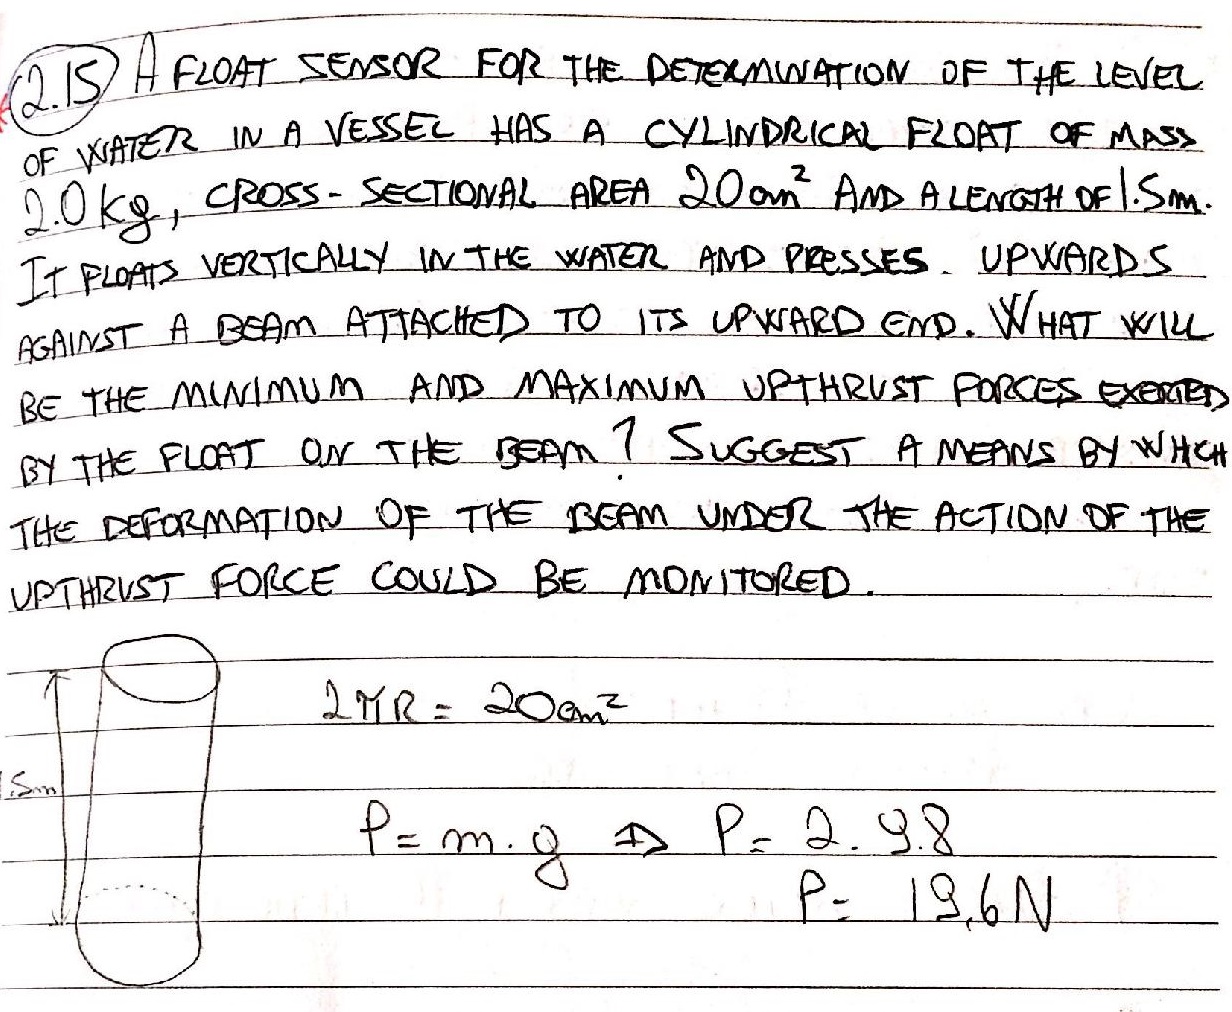 2.15 A FLOAT SENSOR FOR THE DETERMINATION OF THE LEVEL
OF WATER IN A VESSEL HAS A CYLINDRICAL FLOAT OF MASS
2.0 kg, CROSS-SECTIONAL AREA 20 cm² AND A LENGTH OF 1.5m.
IT FLOATS VERTICALLY IN THE WATER AND PRESSES UPWARDS
AGAINST A BEAM ATTACHED TO ITS UPWARD END. WHAT WILL
BE THE MINIMUM AND MAXIMUM UPTHRUST FORCES EXERTED
BY THE FLOAT ON THE BEAM? SUGGEST A MEANS BY WHICH
THE DEFORMATION OF THE BEAM UNDER THE ACTION OF THE
UPTHRUST FORCE COULD BE MONITORED.
2πR = 20cm²
1.5m
P = m.g ⇒ P = 2.9.8
P = 19,6N